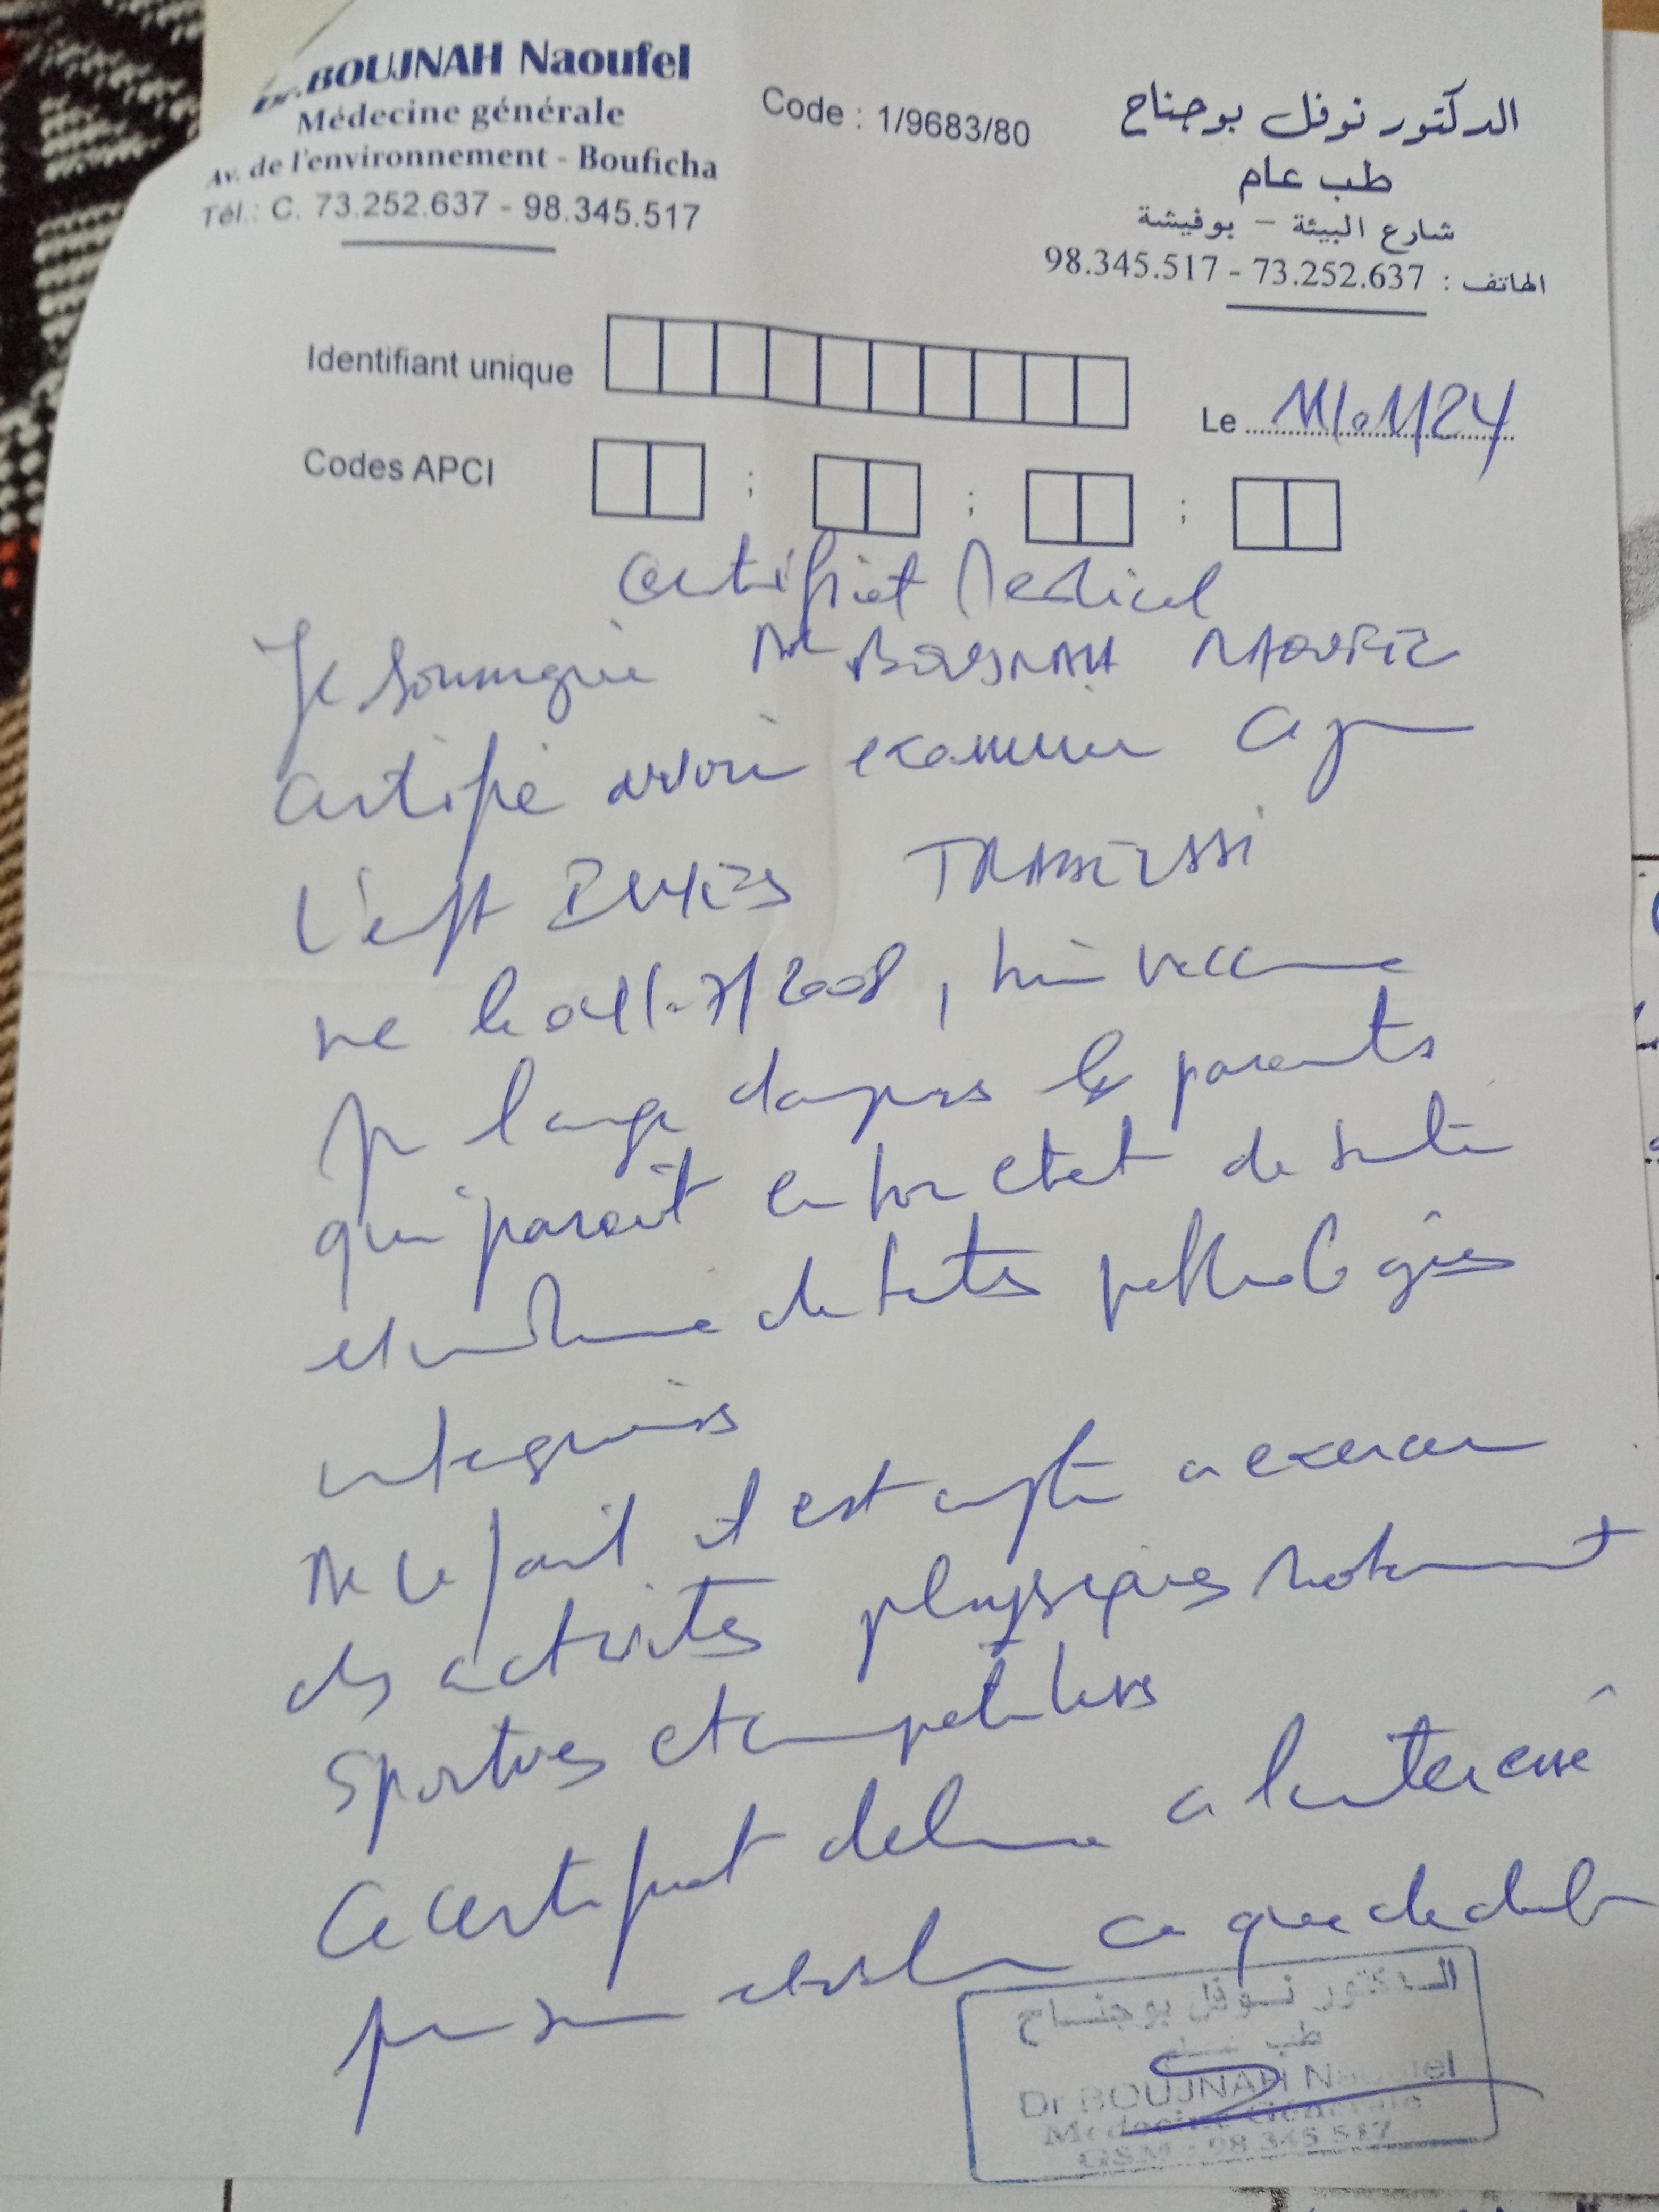 Dr.BOUJNAH Naoufel
Médecine générale
Av. de l'environnement - Bouficha
Tél.: C. 73.252.637 - 98.345.517
Code : 1/9683/80
الدكتور نوفل بوجناح
طب عام
شارع البيئة – بوفيشة
الهاتف : 73.252.637 - 98.345.517
Identifiant unique
Le 11/01/24
Codes APCI ; ; ;
Certificat Medical
Je soussigné Dr BOUJNAH NAOUFEL
certifie avoir examiner ce jour
l'enft TRABELSSI
ne le 04/07/2008, bien vaccine
d'apres les parents
qui parait en bon etat de sante
et indemne de toutes pathologies
De ce fait il est apte a exercer
des activites physiques notamment
sportives et competitions
Ce certificat delivre a l'interessé
pour servir et valoir ce que de droit
الدكتور نوفل بوجناح
طب عام
Dr BOUJNAH Naoufel
Médecine Générale
GSM : 98 345 517